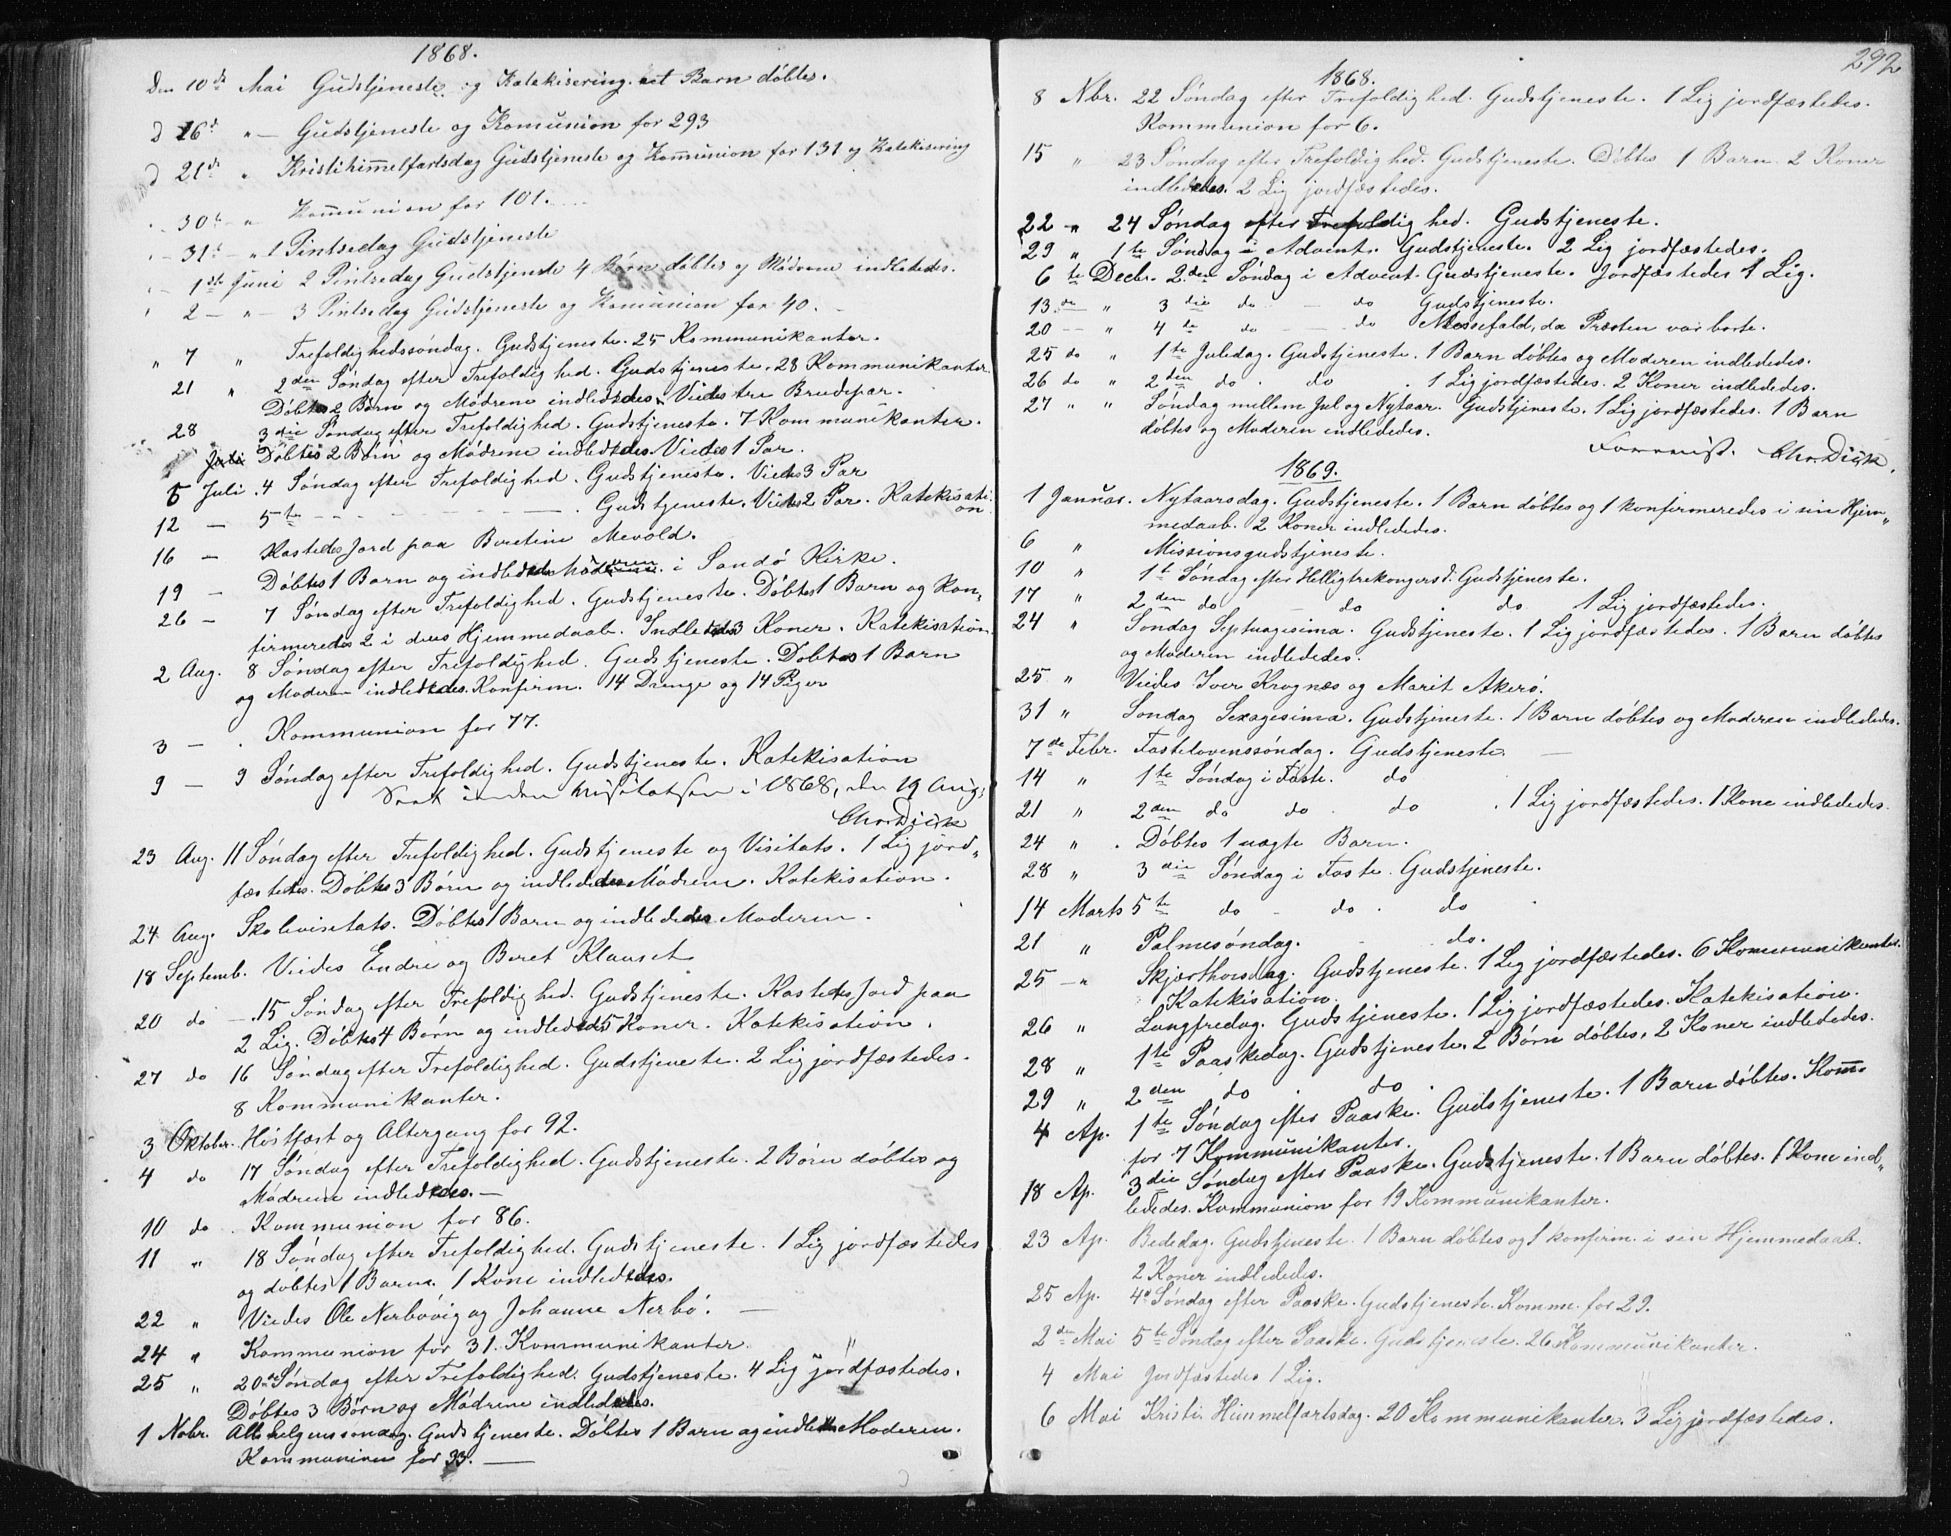 1868.
Den 10de Mai Gudstjeneste og Katekisering. et Barn døbtes.
D 16d " — Gudstjeneste og Komunion for 293
D 21de " Kristihimmelfartsdag Gudstjeneste og Kommunion for 131 og Katekisering
30t — " Kommunion for 101.
31t " 1 Pintsedag Gudstjeneste
1ste Juni 2 Pintsedag Gudstjeneste 4 Børn døbtes og Mødrene indlededes.
2 — " — 3 Pintsedag Gudstjeneste og Komunion for 40.
" 7 " Trefoldighedssøndag. Gudstjeneste. 25 Kommunikanter.
21 " 2den Søndag efter Trefoldighed. Gudstjeneste. 28 Kommunikanter
Døbtes 2 Børn og Mødrene indlededes. Viedes tre Brudepar.
28 3die Søndag efter Trefoldighed. Gudstjeneste. 7 Kommunikanter.
Juli Døbtes 2 Børn og Mødrene indlededes. Viedes 1 Par.
5 Juli. 4 Søndag efter Trefoldighed. Gudstjeneste. Viedes 3 Par
12 — 5te - - - — . Gudstjeneste. Viedes 2 Par. Katekisati-
on.
16 — Kastedes Jord paa Beretine Mevold.
19 — Døbtes 1 Barn og indlededes Moderen i Sandø Kirke.
26 — 7 Søndag efter Trefoldighed. Gudstjeneste. Døbtes 1 Barn og kon„
firmeredes 2 i deres Hjemmedaab. Indlededes 3 Koner. Katekisation.
2 Aug. 8 Søndag efter Trefoldighed. Gudstjeneste. Døbtes 1 Barn
og Moderen indlededes. Konfirm. 14 Drenge og 14 Piger
3 — . Kommunion for 77.
9 — 9 Søndag efter Trefoldighed. Gudstjeneste. Katekisation
Seet under Visitatsen i 1868, den 19 Aug.
Chr. Dick
23 Aug. 11 Søndag efter Trefoldighed. Gudstjeneste og Visitats. 1 Lig jord„
fæstedes. Døbtes 3 Børn og indlededes Mødrene. Katekisation.
24 Aug. Skolevisitats. Døbtes 1 Barn og indlededes Moderen.
18 Septemb. Viedes Endre og Beret Klauset
20 do — . 15 Søndag efter Trefoldighed. Gudstjeneste. Kastedes Jord paa
2 Lig. Døbtes 4 Børn og indlededes 5 Koner. Katekisation.
27 do 16 Søndag efter Trefoldighed. Gudstjeneste. 2 Lig jordfæstedes.
8 Kommunikanter.
3 Oktober. Høstfæst og Altergang for 92.
4 do 17 Søndag efter Trefoldighed. Gudstjeneste. 2 Børn døbtes og
Mødrene indlededes. —
10 do . Kommunion for 86.
11 " 18 Søndag efter Trefoldighed. Gudstjeneste. 1 Lig jordfæstedes
og døbtes 1 Barn. 1 Kone indlededes.
22 " Viedes Ole Nerbøvig og Johanne Nerbø. —
24 " Kommunion for 31. Kommunikanter.
25 " 20de Søndag efter Trefoldighed. Gudstjeneste. 4 Lig jordfæstedes.
Døbtes 3 Børn og Mødrene indlededes.
1 Nobr. Allehelgenssøndag. Gudstjeneste. Døbtes 1 Barn og indlededes Moderen.
Kommunion for 33. —
292
1868.
8 Nbr. 22 Søndag efter Trefoldighed. Gudstjeneste. 1 Lig jordfæstedes.
Kommunion for 6.
15 " 23 Søndag efter Trefoldighed. Gudstjeneste. Døbtes 1 Barn. 2 Koner
indlededes. 2 Lig jordfæstedes.
22 " 24 Søndag efter Trefoldighed. Gudstjeneste.
29 " 1te Søndag i Advent. Gudstjeneste. 2 Lig jordfæstedes.
6te Decbr. 2den Søndag i Advent. Gudstjeneste. Jordfæstedes 1 Lig.
13de " 3die do — do Gudstjeneste.
20 — " 4de do — do Messefald, da Præsten var borte.
25 do " 1te Juledag. Gudstjeneste. 1 Barn døbtes og Moderen indlededes.
26 do " 2den do . do . 1 Lig jordfæstedes. 2 Koner indlededes.
27 " " Søndag mellem Jul og Nytaar. Gudstjeneste. 1 Lig jordfæstedes. 1 Barn
døbtes og Moderen indlededes.
Forevist. Chr. Dick.
1869.
1 Januar. Nytaarsdag. Gudstjeneste. 1 Barn døbtes og 1 konfirmeredes i sin Hjem„
medaab. 2 Koner indlededes.
6 " Missionsgudstjeneste.
10 " 1t Søndag efter Helligtrekongersd. Gudstjeneste.
17 " 2den do — do . do 1 Lig jordfæstedes.
24 " Søndag Septuagesima. Gudstjeneste. 1 Lig jordfæstedes. 1 Barn døbtes
og Moderen indlededes.
25 " Viedes Iver Krognæs og Marit Akerø.
31 " Søndag Sexagesima. Gudstjeneste. 1 Barn døbtes og Moderen indlededes.
7de Febr. Fastelavenssøndag. Gudstjeneste —
14 " 1te Søndag i Faste. do
21 " 2den do do . do . 1 Lig jordfæstedes. 1 Kone indlededes.
24 " . Døbtes 1 uægte Barn.
28 " 3die Søndag i Faste. Gudstjeneste.
14 Marts 5te do - do . do
21 " Palmesøndag. - do.
25 — " Skjærthorsdag. Gudstjeneste. 1 Lig jordfæstedes. 6 Kommunikanter.
Katekisation.
26 " Langfredag. Gudstjeneste. 1 Lig jordfæstedes. Katekisation.
28 " 1te Paaskedag. Gudstjeneste. 2 Børn døbtes. 2 Koner indlededes.
29 " 2den do . do .
4 Ap. 1te Søndag efter Paaske. Gudstjeneste. 1 Barn døbtes. Kom̄.
for 7 Kommunikanter.
18 Ap. 3die Søndag efter Paaske. Gudstjeneste. 1 Barn døbtes. 1 Kone ind„
lededes. Kommunion for 19 Kommunikanter.
23 Ap. Bededag. Gudstjeneste. 1 Barn døbtes og 1 konfirm. i sin Hjemmedaab.
2 Koner indlededes.
25 Ap. 4de Søndag efter Paaske. Gudstjeneste. Komm. for 29.
2den Mai 5te Søndag efter Paaske. Gudstjeneste. 26 Kommunikanter.
4 Mai Jordfæstedes 1 Lig.
6 Mai Kristi Himmelfartsdag. 20 Kommunikanter. 3 Lig jordfæstedes.